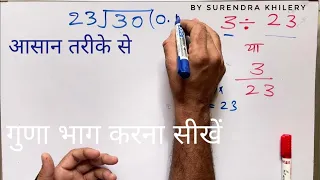 BY SURENDRA KHILERY
23√30(0.
3 ÷ 23
आसान तरीके से
या
3
23
= 23
गुणा भाग करना सीखें